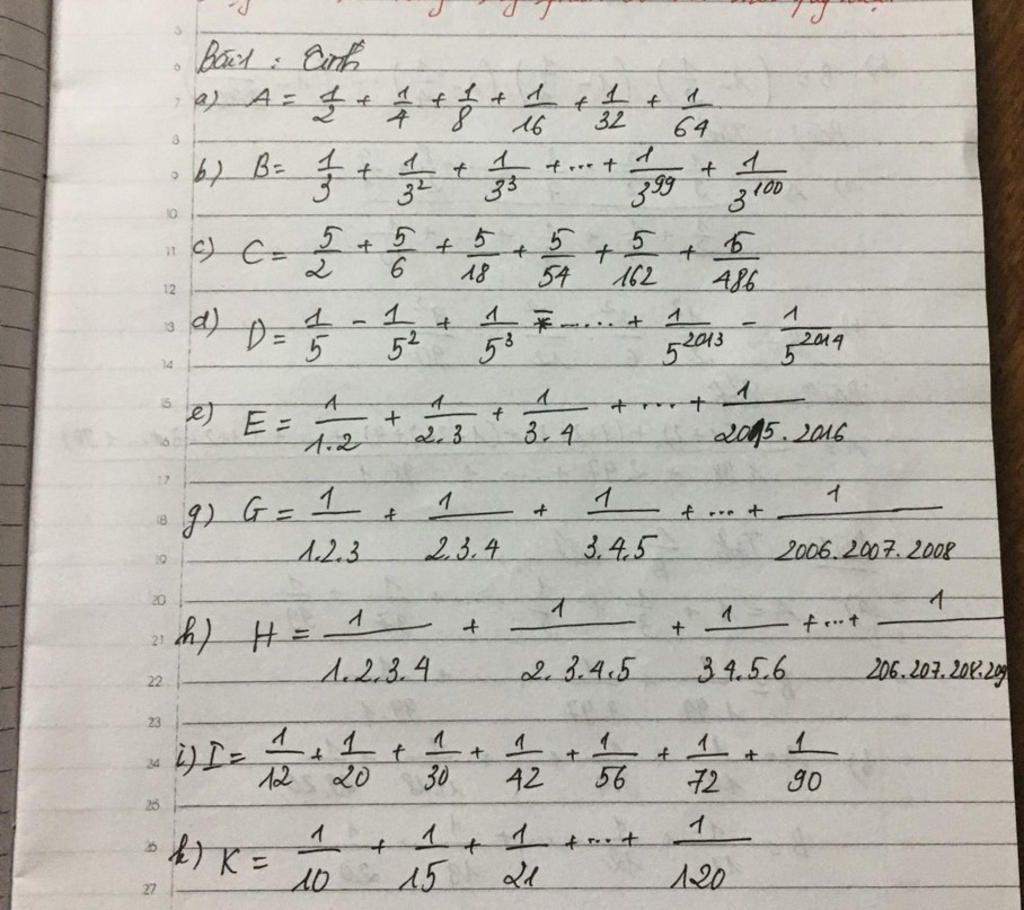 Bài 1 : Tính
a) A = 1/2 + 1/4 + 1/8 + 1/16 + 1/32 + 1/64
b) B = 1/3 + 1/3^2 + 1/3^3 + ... + 1/3^99 + 1/3^100
c) C = 5/2 + 5/6 + 5/18 + 5/54 + 5/162 + 5/486
d) D = 1/5 - 1/5^2 + 1/5^3 - ..... + 1/5^2013 - 1/5^2014
e) E = 1/1.2 + 1/2.3 + 1/3.4 + ... + 1/2015.2016
g) G = 1/1.2.3 + 1/2.3.4 + 1/3.4.5 + ... + 1/2006.2007.2008
h) H = 1/1.2.3.4 + 1/2.3.4.5 + 1/3.4.5.6 + ... + 1/206.207.208.209
i) I = 1/12 + 1/20 + 1/30 + 1/42 + 1/56 + 1/72 + 1/90
k) K = 1/10 + 1/15 + 1/21 + ... + 1/120